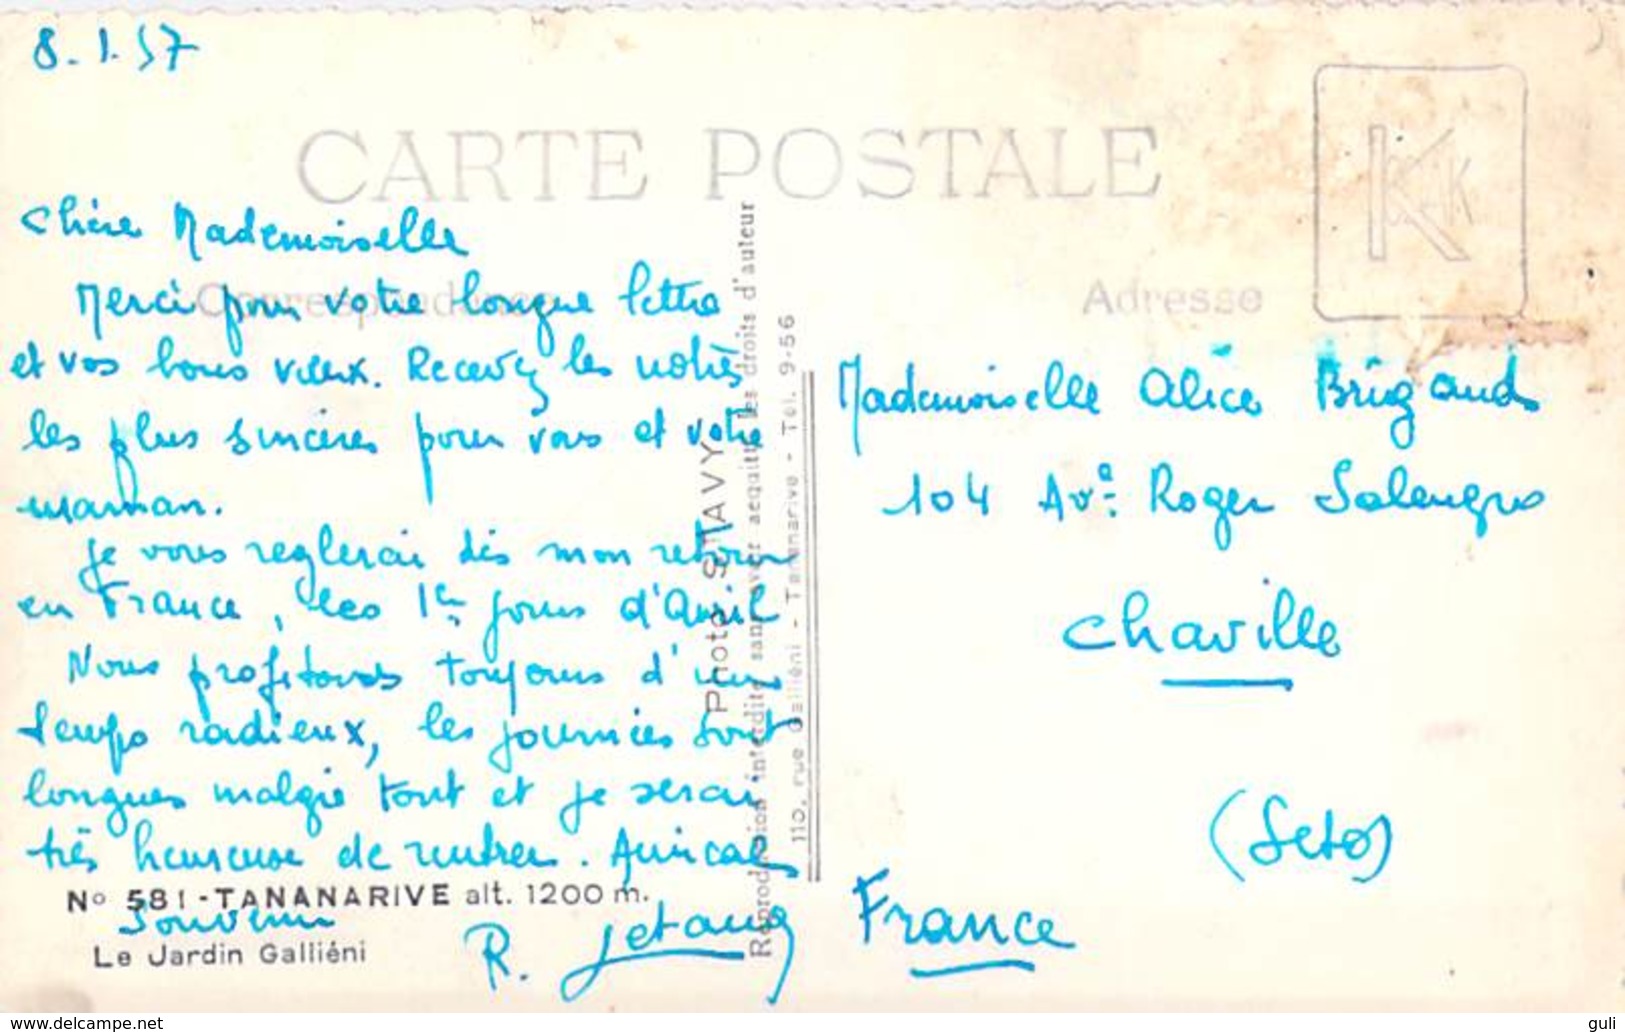 8.1.57
CARTE POSTALE
Correspondance
Adresse
Chère Mademoiselle
Merci pour votre longue lettre
et vos bons vœux. Recevez les notres
les plus sincères pour vous et votre
maman.
Je vous reglerai dès mon retour
en France, les 1ers jours d'Avril
Nous profitons toujours d'un
temps radieux, les journées sont
longues malgré tout et je serai
très heureuse de rentrer. Amical
souvenir
R.
N° 581 - TANANARIVE alt. 1200 m.
Le Jardin Galliéni
Photo
Reproduction interdite sans avoir acquitté les droits d'auteur
110, rue Galliéni - Tananarive - Tél. 9-56
Mademoiselle Alice Brigaud
104 Ave Roger Salengro
Chaville
(Seto)
France
guli
delcampe.net